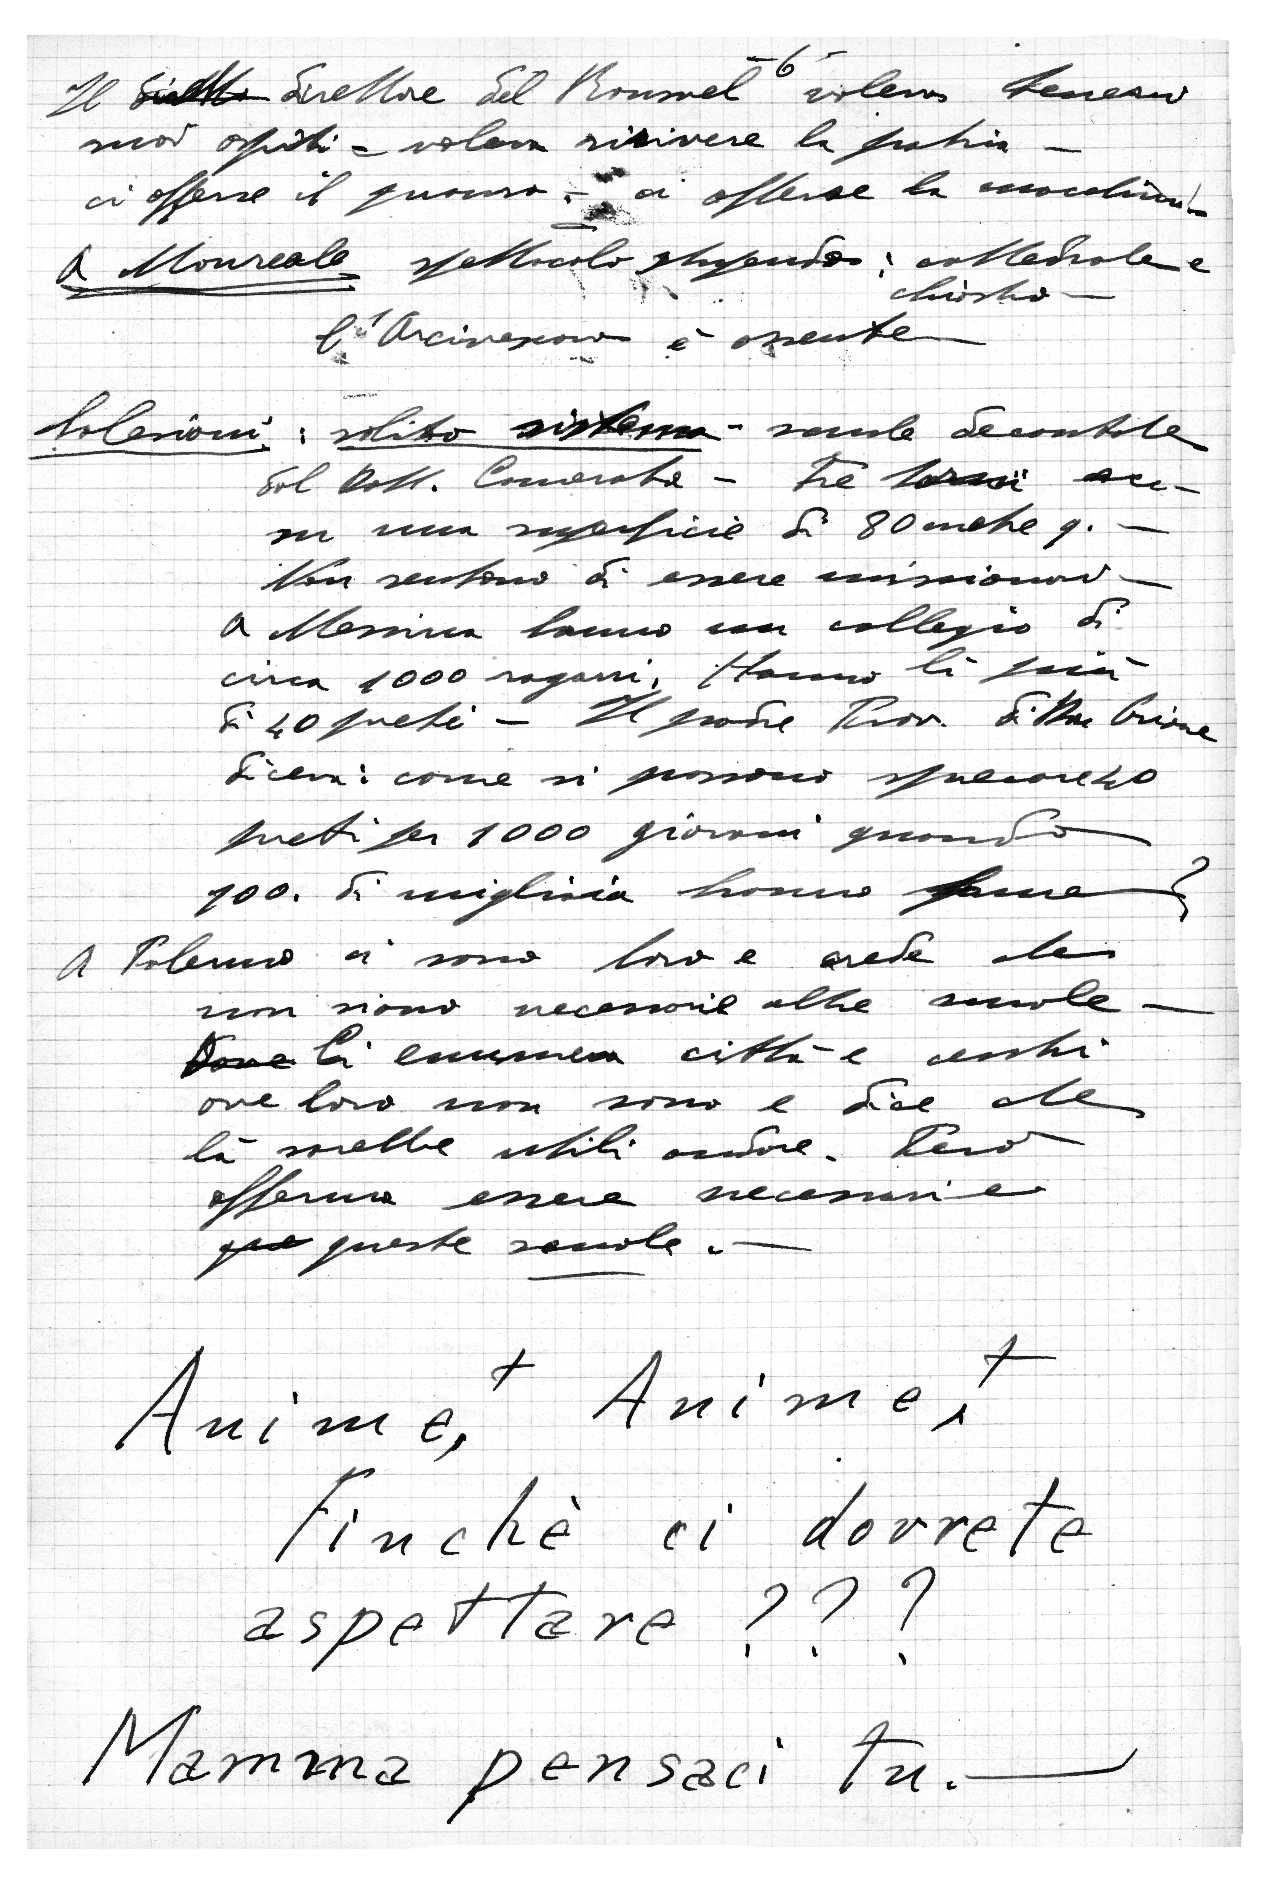 -6-
Il direttore del voleva tenerci
suoi ospiti = voleva la patria -
ci offerse il pranzo - ci offerse la macchina
A Monreale spettacolo stupendo: cattedrale e
chiostro -
l'Arcivescovo è assente -
Salesiani: solito sistema - scuole decantate
dal Dott. Camerata - Tre torni
su una superficie di 80 metri q. -
Non sentono di essere missionari -
A Messina hanno un collegio di
circa 1000 ragazzi. Hanno lì più
di 40 preti - Il padre Prov. di Don Orione
diceva: come si possono sprecare 40
preti per 1000 giovani quando
100. di migliaia hanno fame?
A Palermo ci sono loro e crede che
non siano necessarie altre scuole -
Dove Ci enumera città e centri
ove loro non sono e dice che
là sarebbe utili andare. Però
afferma essere necessarie
que queste scuole. -
Anime, + Anime, +
Finchè ci dovrete
aspettare ? ? ?
Mamma pensaci tu. -